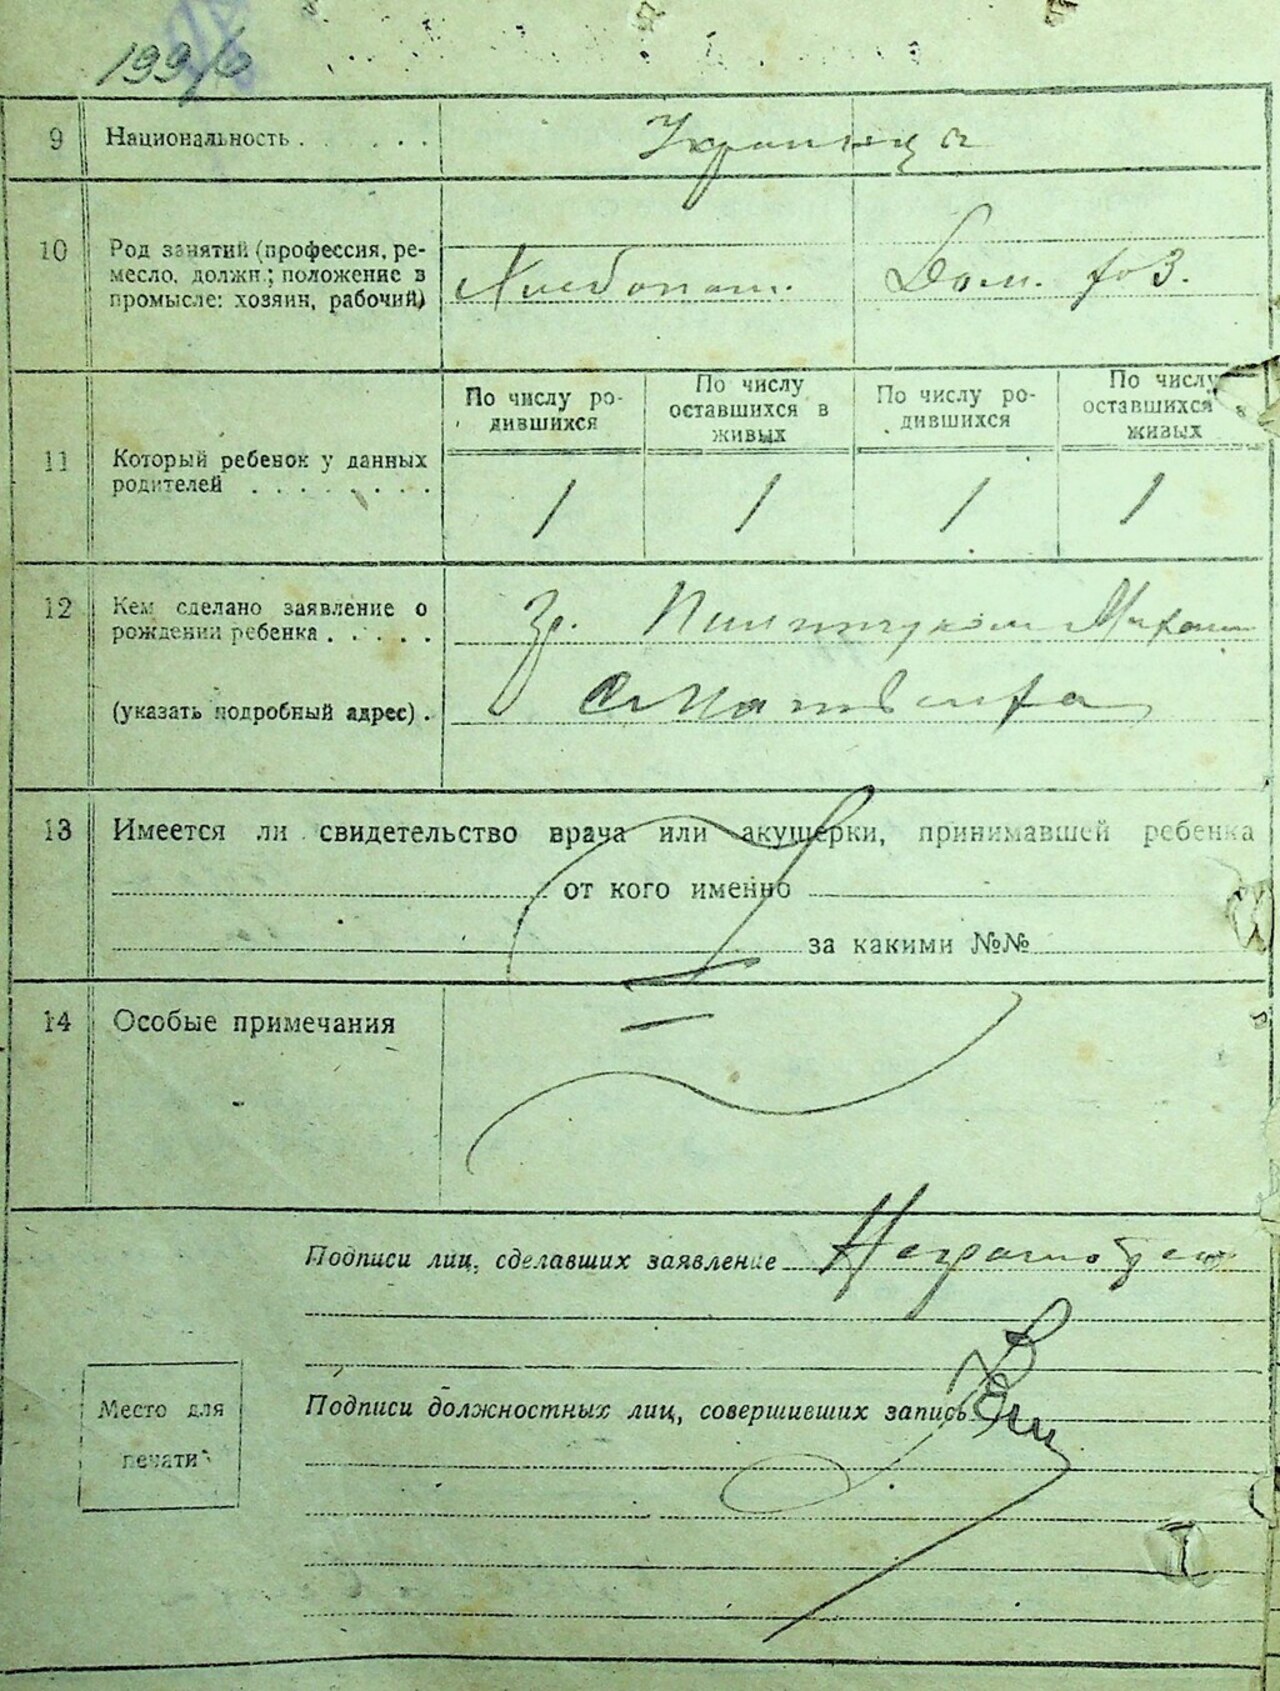 199
9 Национальность . . . . . . Украинца
10 Род занятий (профессия, ре-
месло, должн.; положение в
промысле: хозяин, рабочий)
Хлебопаш. Дом. хоз.
По числу ро-
дившихся
По числу
оставшихся в
живых
По числу ро-
дившихся
По числу
оставшихся в
живых
11 Который ребенок у данных
родителей . . . . . . . .
1 1 1 1
12 Кем сделано заявление о
рождении ребенка . . . . .
Гр. Михаил
(указать подробный адрес) .
с Матвеиха
13 Имеется ли свидетельство врача или акушерки, принимавшей ребенка
от кого именно
за какими №№
14 Особые примечания
Подписи лиц, сделавших заявление Неграмотен
Подписи должностных лиц, совершивших запись
Место для
печати